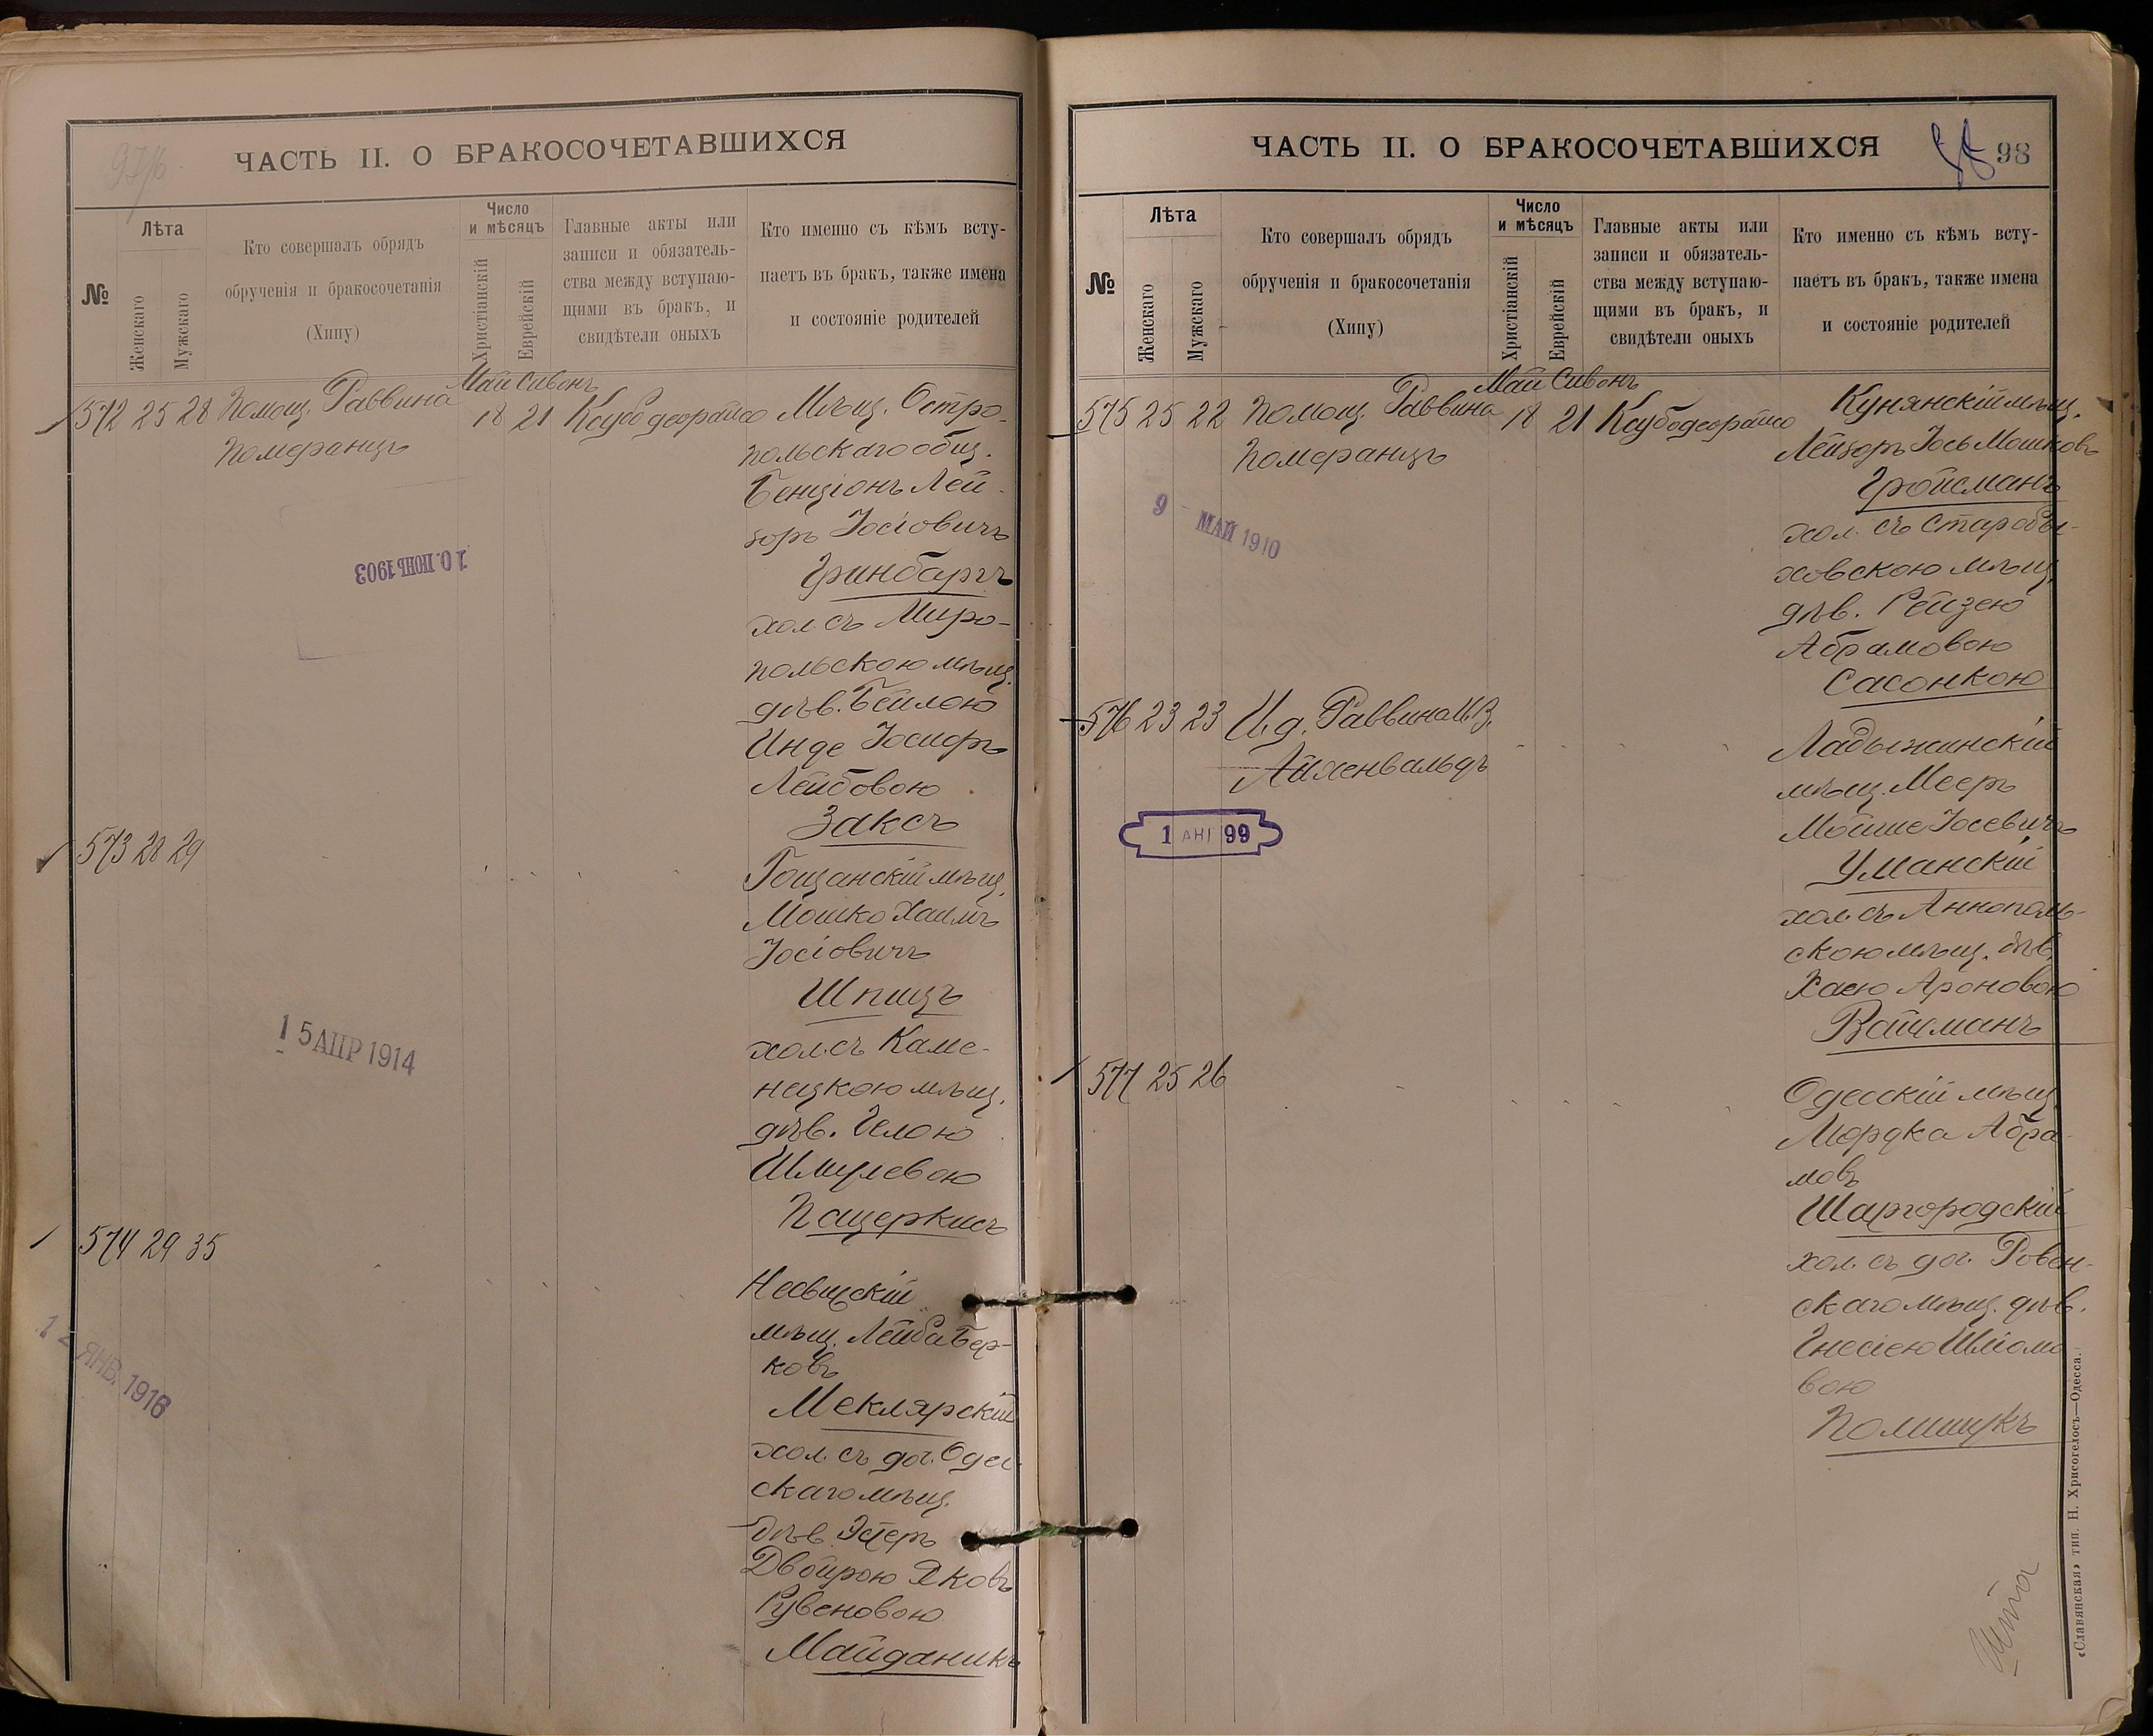 ЧАСТЬ II. О БРАКОСОЧЕТАВШИХСЯ
№
Лѣта
Женскаго
Мужскаго
Кто совершалъ обрядъ
обрученія и бракосочетанія
(Хипу)
Число
и мѣсяцъ
Христіанскій
Еврейскій
Главные акты или
записи и обязатель-
ства между вступаю-
щими въ бракъ, и
свидѣтели оныхъ
Кто именно съ кѣмъ всту-
паетъ въ бракъ, также имена
и состояніе родителей
Май Сивонъ
572 25 28 Помощ. Раввина 18 21 Ксубодеорайсо Мѣщ. Остро-
Померанцъ
польскаго общ.
Бенціонъ Лей-
зоръ Іосіовичъ
Гринбаргъ
хол. съ Миро-
польскою мѣщ.
дѣв. Бейлою
Инде Іосифъ
Лейбовою
Заксъ
10. ІЮНЬ 1903
573 28 29
Гощанскій мѣщ.
Мошко Хаимъ
Іосіовичъ
Шпицъ
хол. съ Каме-
нецкою мѣщ.
дѣв. Гелою
Шмулевою
Пацеркисъ
15 АПР 1914
574 29 35
Несвижскій
мѣщ. Лейба Бер-
ковъ
Меклярскій
хол. съ доч. Одес-
скаго мѣщ.
дѣв. Эстеръ
Двойрою Яковъ
Рувеновою
Майданикъ
12 ЯНВ. 1916
ЧАСТЬ II. О БРАКОСОЧЕТАВШИХСЯ
98
№
Лѣта
Женскаго
Мужскаго
Кто совершалъ обрядъ
обрученія и бракосочетанія
(Хипу)
Число
и мѣсяцъ
Христіанскій
Еврейскій
Главные акты или
записи и обязатель-
ства между вступаю-
щими въ бракъ, и
свидѣтели оныхъ
Кто именно съ кѣмъ всту-
паетъ въ бракъ, также имена
и состояніе родителей
Май Сивонъ
575 25 22 Помощ. Раввина 18 21 Ксубодеорайсо Кунянскій мѣщ.
Померанцъ
Лейзоръ Іось Мошковъ
Гройсманъ
хол. съ Старобы-
ховскою мѣщ.
дѣв. Рейзею
Абрамовою
Сасонкою
9 МАЙ 1910
576 23 23 И. д. Раввина И. З.
Айхенвальдъ
Ладыжинскій
мѣщ. Мееръ
Мойше Іосевичъ
Уманскій
хол. съ Аннополь-
скою мѣщ. дѣв.
Хаею Ароновою
Вайсманъ
1 АВГ 99
577 25 26
Одесскій мѣщ.
Мордка Абра-
мовъ
Шаргородскій
хол. съ доч. Ровен-
скаго мѣщ. дѣв.
Гнесіею Шліомо
вою
Полишукъ
«Славянская» тип. Н. Хрисогелосъ—Одесса.